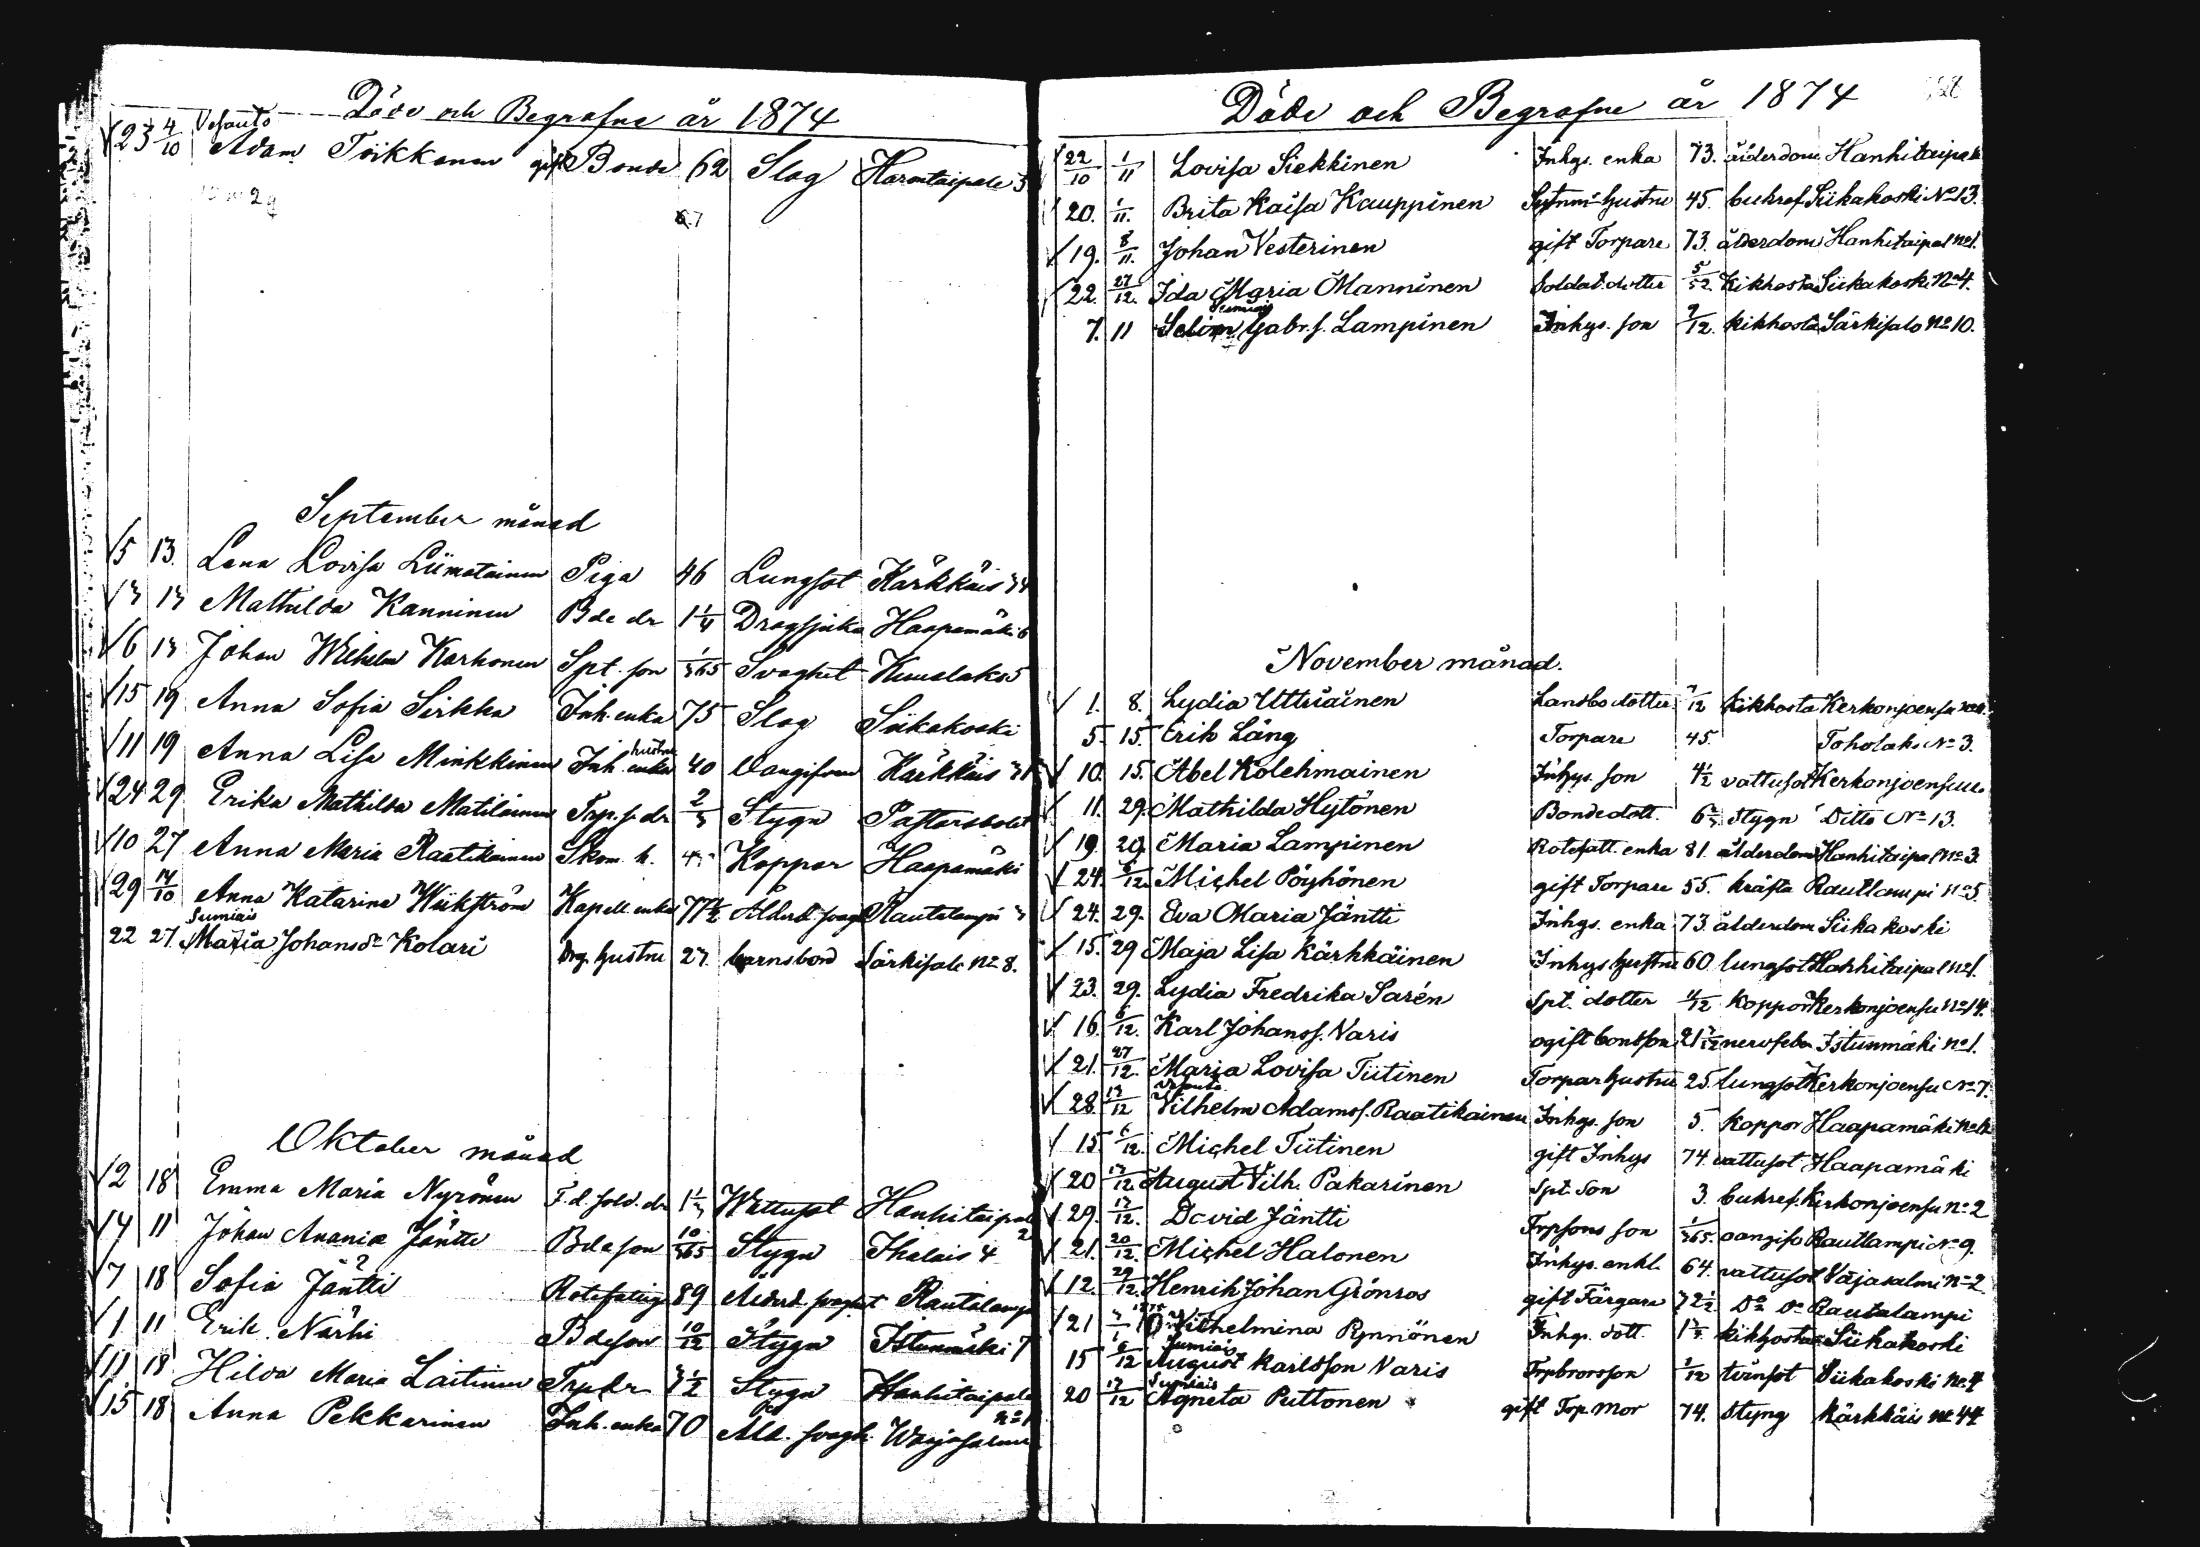 Döde och Begrafne år 1874
Vesanto
23 4/10 Adam Toikkanen gift Bonde 62 Slag Harontaipale 3
September månad
5 13. Lena Lovisa Liimatainen Piga 46 Lungsot Kärkkäis 34
3 13 Mathilda Kanninen Bde dr 1 1/4 Dragsjuka Haapamäki 6
6 13 Johan Wilhelm Korhonen Spt. son 1/365 Svaghet Kuuslaks 5
15 19 Anna Sofia Sirkka Inh. enka 75 Slag Siikakoski
hustru
11 19 Anna Lisa Minkkinen Inh. enka 40 Oangifven Kärkkäis 31
24 29 Erika Mathilda Matilainen Trp. s. dr 2/3 Stygn Pastorsbolet
10 27 Anna Maria Raatikainen Skom. h. Koppor Haapamäki
29 14/10 Anna Katarina Wiikström Kapell. enka 77 1/2 Ålderd. svagh Rautalampi 3
Sumiais
22 27. Maria Johansdr Kolari Drg. hustru 27. barnsbörd Särkisalo No 8.
Oktober månad
2 18 Emma Maria Nyrönen F.d. sold. dr 1 1/3 Wattusot Hanhitaipale 2
4 11 Johan Anania Jäntti Bdeson 10/365 Stygn Ihalais 4
7 18 Sofia Jäntti Rotefattig 89 Ålderd. svaghet Rautalampi
1 11 Erik Närhi Bdeson 10/12 Stygn Istunmäki 7
11 18 Hilda Maria Laitinen Trp dr 3 1/2 Stygn Hanhitaipale No 1
15 18 Anna Pekkarinen Inh. enka 70 Åld. svagh. Warjosalmi
Döde och Begrafne år 1874
22/10 1/11 Lovisa Siekkinen Inhys. enka 73. ålderdom Hanhitaipale
20. 1/11. Brita Kaisa Kauppinen Sytnm. hustru 45. bukref Siikakoski No 13.
19. 8/11. Johan Vesterinen gift Torpare 73. ålderdom Hanhitaipal No 1.
22. 27/12. Ida Maria Manninen Soldat. dotter 5/52. Kikhosta Siikakoski No 4.
Sumiais
7. 11 Selim Gabr. s. Lampinen Inhys. son 7/12. kikhosta Särkisalo No 10.
November månad.
1. 8. Lydia Uttriainen Landbo dotter 7/12 kikhosta Kerkonjoensu
5. 15. Erik Läng Torpare 45. Toholaks No 3.
10. 15. Abel Kolehmainen Inhys. son 4 1/2 vattusot Kerkonjoensuu.
11. 29. Mathilda Hytönen Bondedott. 6 2/3 Stygn Ditto No 13.
19. 29. Maria Lampinen Rotefatt. enka 81. ålderdom Hanhitaipal No 3.
24. 6/12. Michel Pöyhönen gift Torpare 55. kräfta Rautlampi No 5.
24. 29. Eva Maria Jäntti Inhys. enka 73. ålderdom Siikakoski
15. 29 Maja Lisa Kärkkäinen Inhys hustru 60 lungsot Hanhitaipal No 1.
23. 29. Lydia Fredrika Sarén Spt. dotter 11/12 koppor Kerkonjoensu No 14.
16. 6/12. Karl Johanss. Varis ogift bondson 21 7/12 nervfeber Istunmäki No 1.
21. 27/12. Maria Lovisa Tiitinen Torparhustru 25. lungsot Kerkonjoensu No 7.
Vesanto
28. 13/12 Vilhelm Adamss. Raatikainen Inhys. son 5. koppor Haapamäki
15. 6/12. Michel Tiitinen gift Inhys 74. vattusot Haapamäki
20 13/12 August Vilh. Pakarinen Spt. Son 3. bukref. Kerkonjoensu No 2
29. 13/12. David Jäntti Trpsons son 1/365. oangifv Rautlampi No 9.
21. 20/12. Michel Halonen Inhys. enkl. 64. vattusot Väjasalmi No 2.
12. 29/12. Henrik Johan Grönros gift Färgare 72 1/2 Do Do Rautalampi
1875
21 3/1 Vilhelmina Rynnönen Inhys. dott. 1 2/3 kikhosta Siikakoski
Sumiais
15 6/12 August Karlsson Varis Trpbrorsson 1/12 tvinsot Siikakoski No 4
Sumiais
20 13/12 Agneta Puttonen gift Trp. Mor 74. Styng Kärkkäis No 44